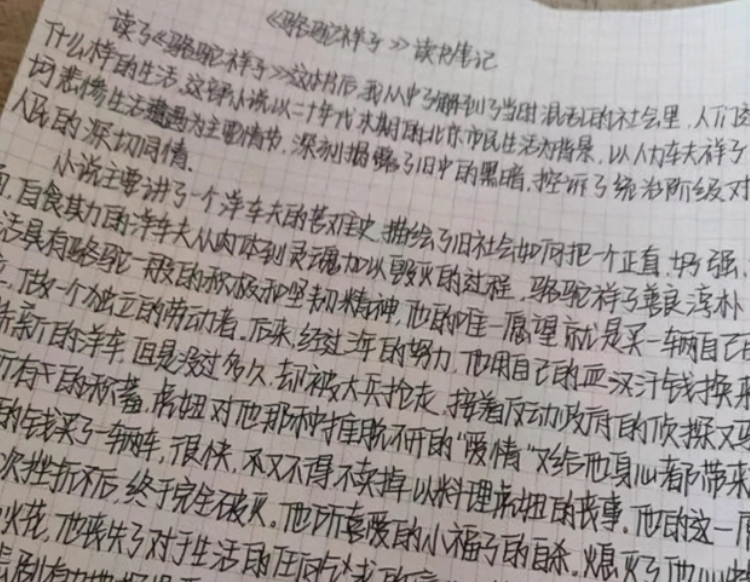 《骆驼祥子》读书笔记
读了《骆驼祥子》这本书后,我从中了解到了当时混乱的社会里,人们
什么样的生活,这部小说以二十年代末期的北京市民生活为背景,以人力车夫祥子
坷悲惨生活遭遇为主要情节,深刻揭露了旧中的黑暗,控诉了统治阶级对
人民的深切同情.
小说主要讲了一个洋车夫的苦难史,描绘了旧社会如何把一个正直,好强,
自食其力的洋车夫从肉体到灵魂加以毁灭的过程,骆驼祥子善良淳朴
活具有骆驼一般的积极和坚韧精神,他的唯一愿望就是买一辆自己
做一个独立的劳动者.后来,经过年的努力,他用自己的血汗钱换来
新的洋车,但是没过多久,却被大兵抢走,接着反动政府的侦探又
所有的积蓄,虎妞对他那种推脱不开的“爱情”又给他身心都带来
的钱买了一辆车,很快,不又不得不卖掉以料理虎妞的丧事.他的这一
次挫折后,终于完全破灭.他所喜爱的小福子的自杀.熄灭了他心
火花,他丧失了对于生活的任何